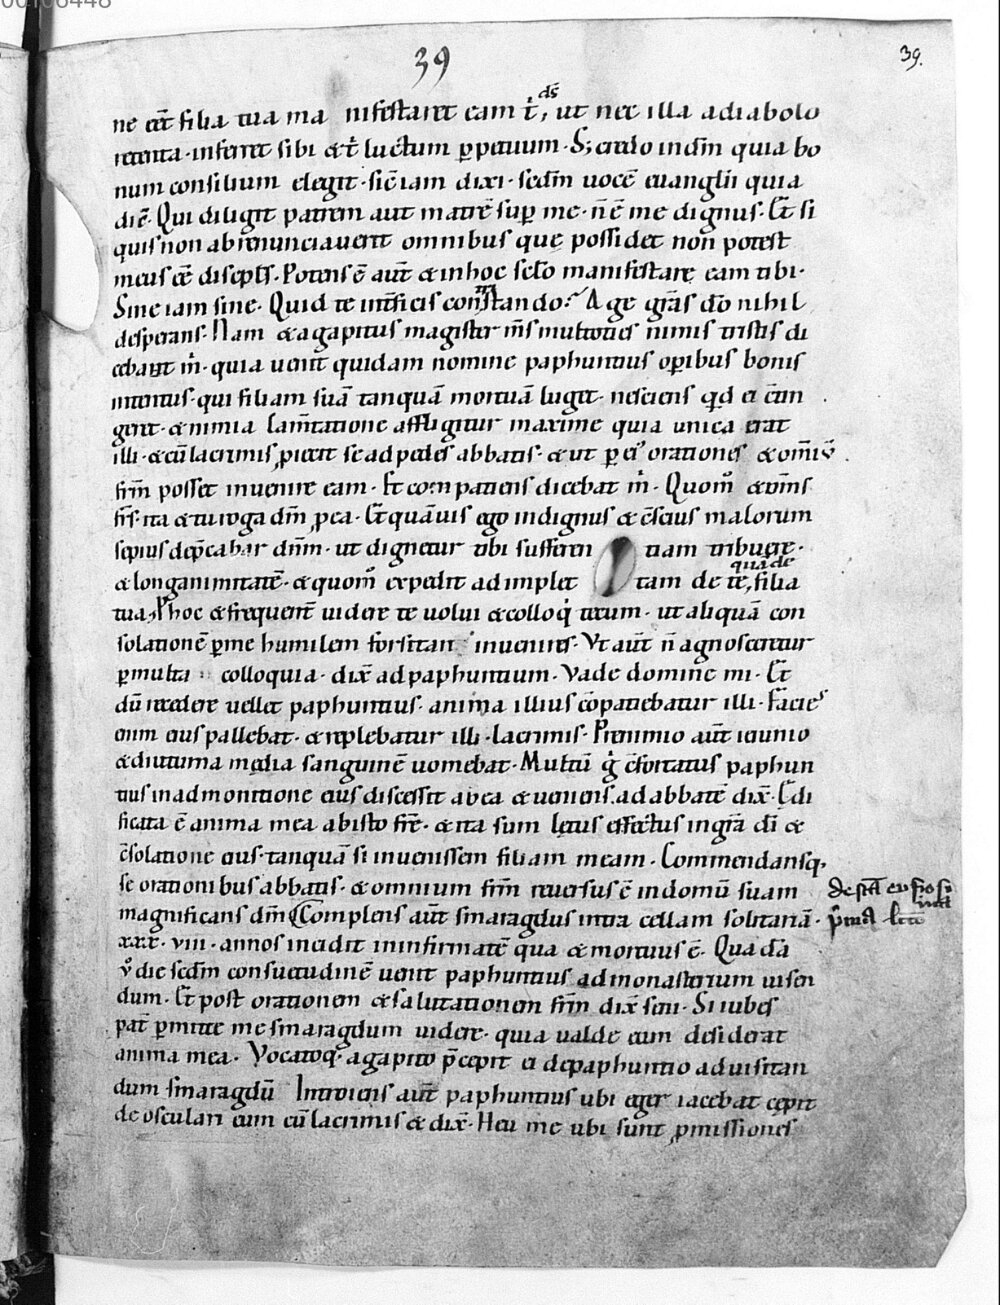 00106448
39
39.
ne eēt filia tua ma nifestaret eam t̄, ds̄ ut nec illa adiabolo
retenta · inferret sibi & t̄ luctum ꝑpetuum · S; credo indm̄ quia bo
num consilium elegit · sic̄ iam dixi · scdm̄ uocē euanglii quia
dic̄ · Qui diligit patrem aut matrē sup̱ me · n̄ ē me dignus · Et si
quis non abrenunciauerit omnibus que possidet non potest
meus eē discipls̄ · Potens ē aut̄ & inhoc sclo manifestare eam tibi ·
Sine iam sine · Quid te interficis constando? Age gr̄as dō nihil
desperans · Nam & agapitus magister m̄s multotiens nimis tristis di
cebat m̄ · quia uenit quidam nomine paphuntius oꝑibus bonis
intentus · qui filiam suā tanquā mortuā luget · nesciens qd̄ ei c̄tin
gerit · & nimia lam̄tatione affligitur maxime quia unica erat
illi · & cū lacrimis ꝓiecit se ad pedes abbatis · & ut ꝑ ei' orationes & om̄iū
frm̄ posset inuenire eam · Et compatiens dicebat m̄ · Quom̊ & om̄s
frs̄ · ita & tu roga dm̄ ꝓ ea · Et quāuis ego indignus & c̄scius malorum
sepius dep̄cabar dnm̄ · ut dignetur tibi sufferen tiam tribuere ·
& longanimitatē · & quom̊ expedit adimplet tam de te, quā de filia
tua · P hoc & frequent̄ uidere te uolui & colloq̇ tecum · ut aliquā con
solationē ꝑme humilem forsitan inuenires · Vt aut̄ n̄ agnosceretur
ꝑmulta colloquia · dix̄ ad paphuntium · Vade domine mi · Et
dū recedere uellet paphuntius · anima illius cōpatiebatur illi · Facies
enim eius pallebat · & replebatur illi · lacrimis · Prenimio aut̄ ieiunio
& diuturna media sanguinē uomebat · Multū g̊ c̄fortatus paphun
tius in admonitione eius discessit abea & ueniens ad abbatē dix̄ · Edi
ficata ē anima mea abisto fr̄e · & ita sum lętus effectus ingr̄a dī &
c̄solatione eius · tanquā si inuenissem filiam meam · Commendansq;
se orationibus abbatis · & omnium frm̄ reuersus ē in domū suam
magnificans dm̄ Complens aut̄ smaragdus intra cellam solitariā ·
xxx · viii · annos incidit in infirmatē qua & mortuus ē · Quadā
v̊ die scdm̄ consuetudinē uenit paphuntius ad monasterium uisen
dum · Et post orationem & salutationem frm̄ dix̄ seni · Si iubes
pat̄ ꝑmitte me smaragdum uidere · quia ualde eum desiderat
anima mea · Vocatoq; agapito p̄cepit ei depaphuntio ad uisitan
dum smaragdū Introiens aut̄ paphuntius ubi eger iacebat cępit
deosculari eum cū lacrimis & dix̄ · Heu me ubi sunt ꝓmissiones